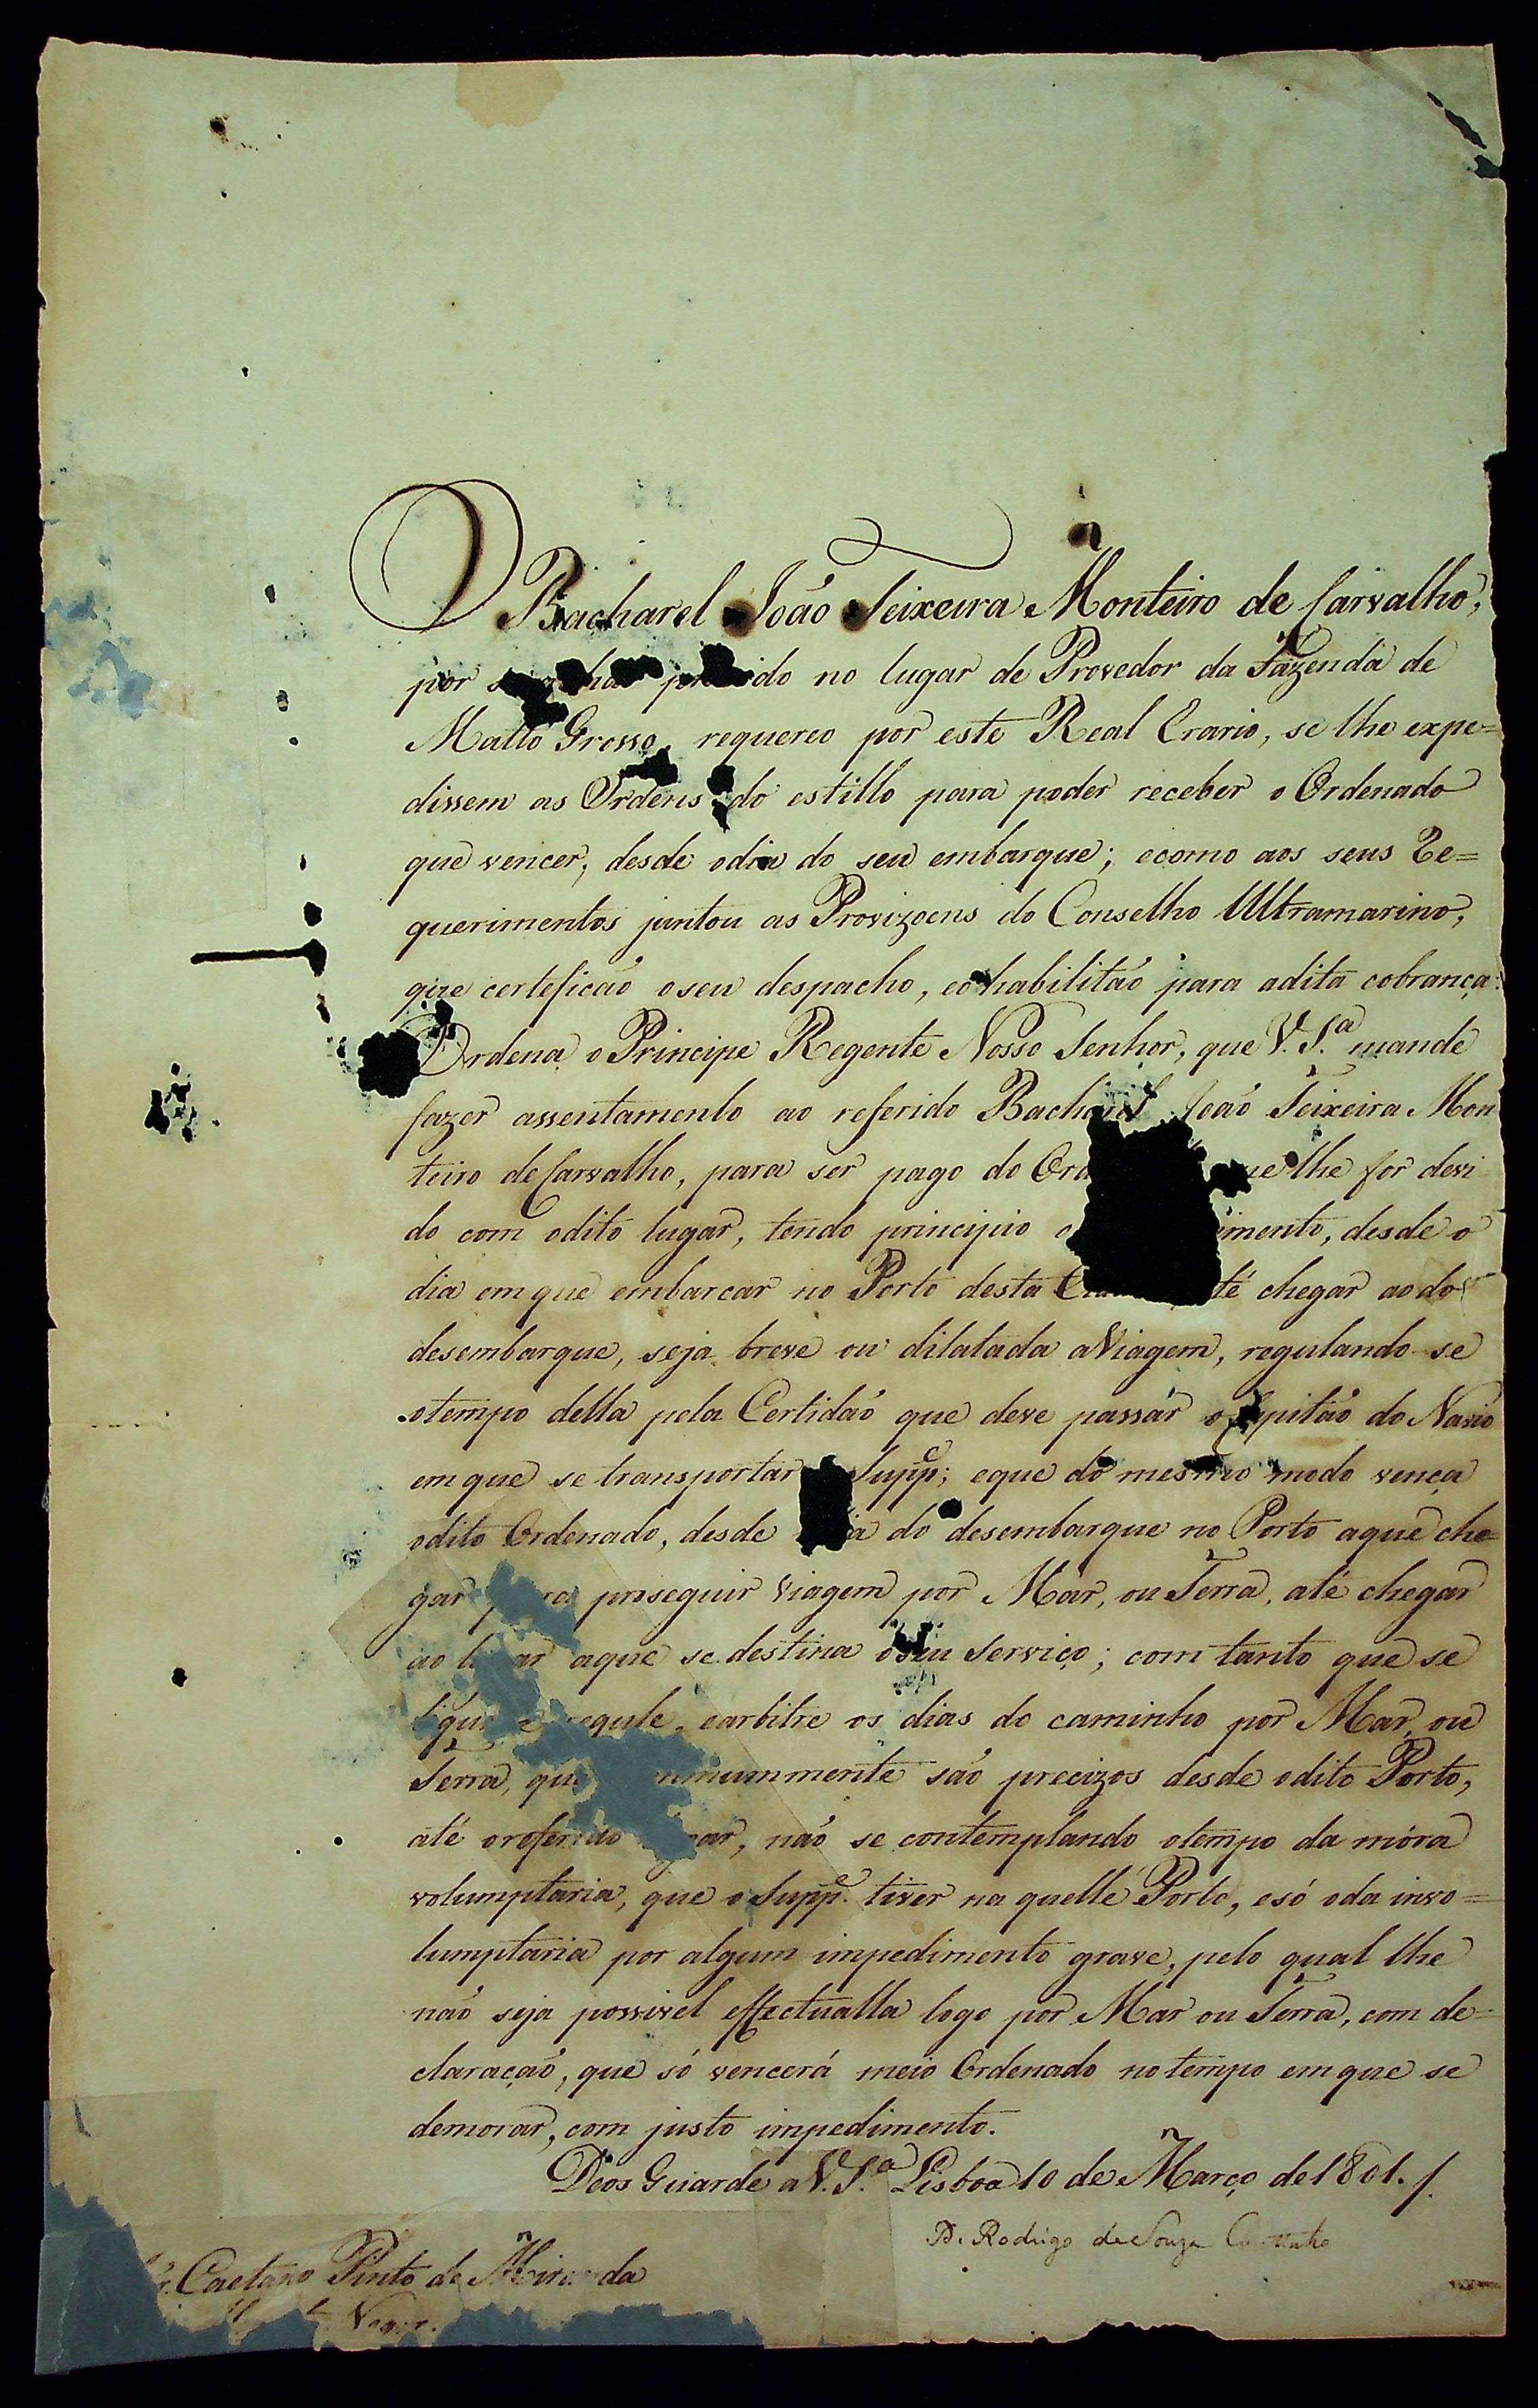 O Bacharel João Teixeira Monteiro de Carvalho,
por do no lugar de Provedor da Fazenda de
Matto Grosso, requereo por este Real Erario, se lhe expe=
dissem as Ordens do estillo para poder receber o Ordenado
que vencer, desde odia do seu embarque; ecomo aos seus Re=
querimentos juntou as Provizoens do Conselho Ultramarino,
que certeficaõ oseu despacho, eohabilitaõ para adita cobrança:
Ordena o Principe Regente Nosso Senhor, que V. S.ª mande
fazer assentamento ao referido Bacharel João Teixeira Mon
teiro deCarvalho, para ser pago do Ord ue lhe for devi
do com odito lugar, tendo principio o imento, desde o
dia emque embarcar no Porto desta té chegar aodo
desembarque, seja breve ou dilatada aViagem, regulando-se
otempo della pela Certidaõ que deve passar o Capitaõ do Navio
emque se transportar Supp.e; eque do mesmo modo vença
odito Ordenado, desde ia do desembarque no Porto aque che=
gar para proseguir viagem por Mar, ou Terra, até chegar
ao lugar aque se destina oseu Serviço; com tanto que se
regule, earbitre os dias do caminho por Mar, ou
Terra, que mummente saõ precizos desde odito Porto,
até oreferido lugar, naõ se contemplando otempo da móra
volumptaria, que o Supp.e tiver na quelle Porto, esó oda invo=
lumptaria por algum impedimento grave, pelo qual lhe
naõ seja possivel effectualla logo por Mar ou Terra, com de=
claraçaõ, que só vencerá meio Ordenado notempo emque se
demorar, com justo impedimento.
Deos Guarde a V. S.ª Lisboa 10 de Março de 1801. /.
D. Rodrigo de Souza Coutinho
Caetano Pinto de Miranda
Negro.